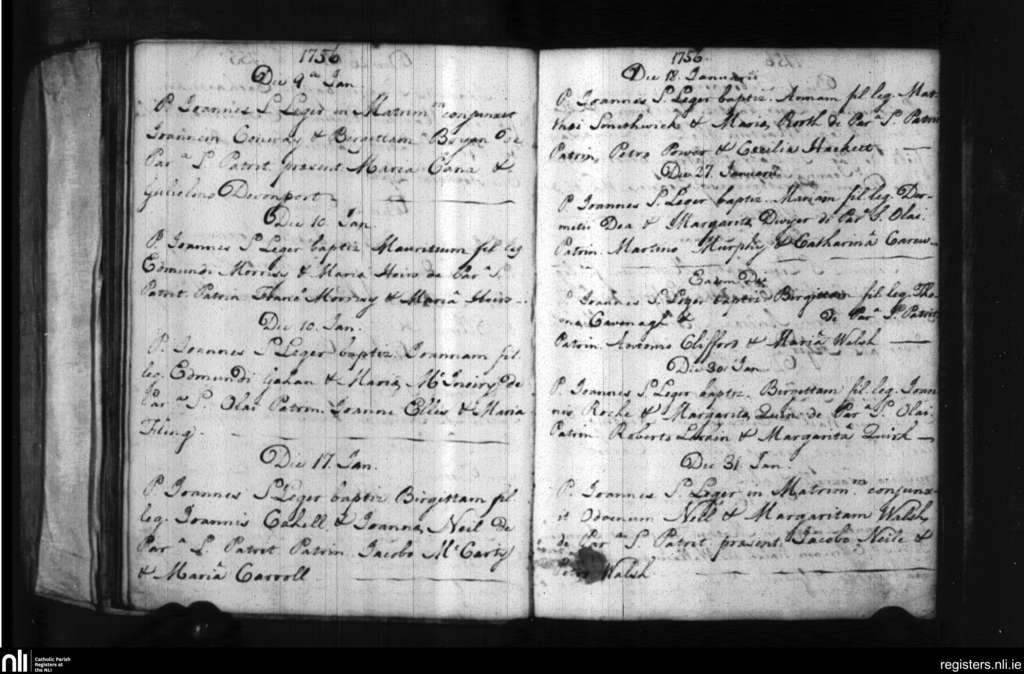 1756
Die 9.a Jan.
P. Joannes St. Leger in Matrim.m conjunxit
Joannem Conway & Birgettam Bryan de
Par.a St. Patrit. present Maria Cana &
Gulielmo Devonport
Die 10 Jan.
P. Joannes St. Leger baptiz. Mauritium fil. leg.
Edmundi Morrisy & Maria de Par.a St.
Patrit. Patrin. Franc.o Morrisy & Mariâ
Die 10. Jan.
P. Joannes St. Leger baptiz. Joannam fil.
leg. Edmundi Gahan & Maria de
Par.a St. Olai Patrin. Joanne Ellis & Maria
Die 17. Jan.
P. Joannes St. Leger baptiz. Birgettam fil.
leg. Joannis Cahill & Joanna Neil de
Par.a St. Patrit. Patrin. Jacobo McCarty
& Mariâ Carroll
1756.
Die 18. Januarii
P. Joannes St. Leger baptiz. Annam fil. leg. Mat-
thaei & Maria de Par.a St. Patrit.
Patrin. Petro Power & Cecilia Hackett
Die 27. Januarii
P. Joannes St. Leger baptiz. Mariam fil. leg. Der-
metii Dea & Margarita Dwyer de Par.a St. Olai.
Patrin. Martino Murphy & Catharinâ Carew
Eadem die
P. Joannes St. Leger baptiz. Birgettam fil. leg. Tho-
ma Cavenagh & de Par.a St. Patrit.
Patrin. Antonio Clifford & Mariâ Walsh
Die 30. Jan.
P. Joannes St. Leger baptiz. Birgettam fil. leg. Joan-
nis Roche & Margarita Quin de Par.a St. Olai.
Patrin. Roberto Larkin & Margaritâ Quirk
Die 31. Jan.
P. Joannes St. Leger in Matrim.m conjunx-
it Neill & Margaritam Walsh
de Par.a St. Patrit. præsent. Jacobo Neile &
Walsh
nli
Catholic Parish
Registers at
the NLI
registers.nli.ie